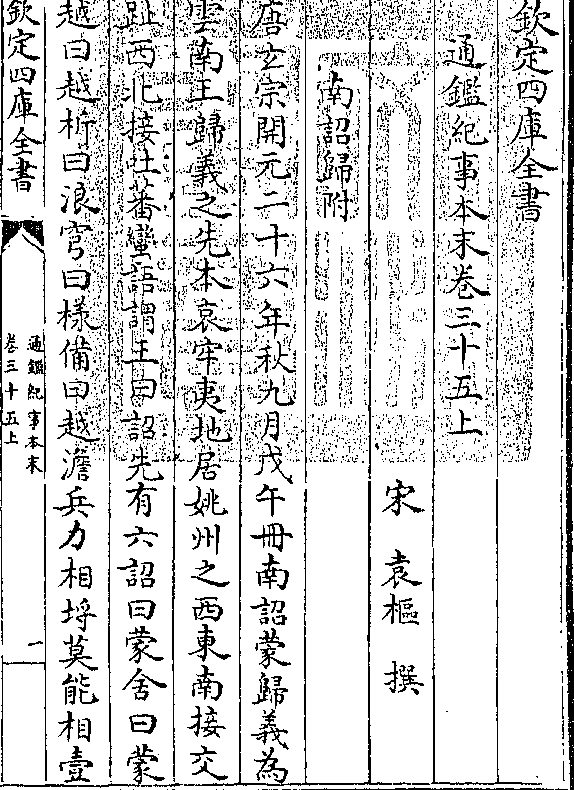 欽定四庫全書
通鑑紀事本末卷三十五上
宋 袁樞 撰
南詔歸附
唐玄宗開元二十六年秋九月戊午冊南詔蒙歸義為
雲南王歸義之先本哀牢夷地居姚州之西東南接交
趾西北接吐蕃蠻語謂王曰詔先有六詔曰蒙舍曰蒙
越曰越析曰浪穹曰樣備曰越澹兵力相埒莫能相壹
欽定四庫全書
通鑑紀事本末
卷三十五上
一